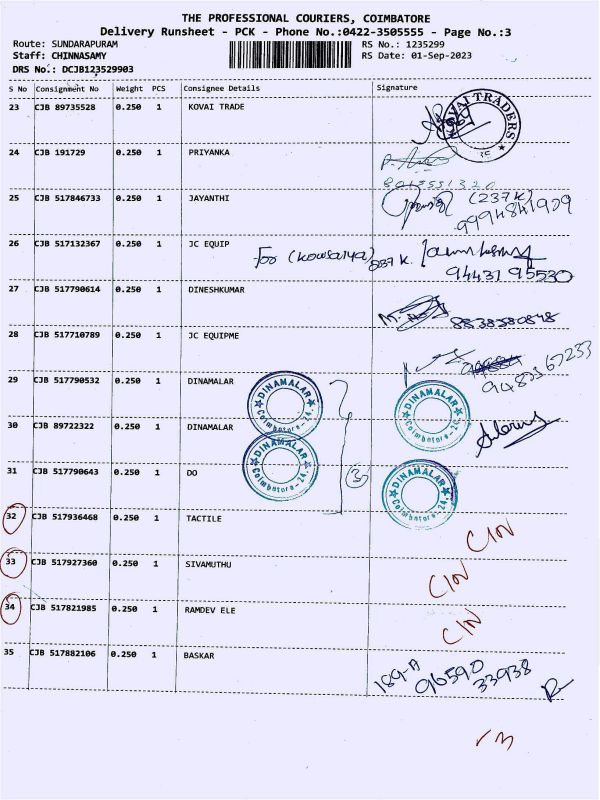 THE PROFESSIONAL COURIERS, COIMBATORE
Delivery Runsheet - PCK - Phone No.:0422-3505555 - Page No.:3
Route: SUNDARAPURAM RS No.: 1235299
Staff: CHINNASAMY RS Date: 01-Sep-2023
DRS No.: DCJB123529903
S No Consignment No Weight PCS Consignee Details Signature
23 CJB 89735528 0.250 1 KOVAI TRADE
KOVAI TRADERS
24 CJB 191729 0.250 1 PRIYANKA
8015551320
25 CJB 517846733 0.250 1 JAYANTHI (237K)
9994841909
26 CJB 517132367 0.250 1 JC EQUIP
For (Kowsalya) 237 K.
9443195530
27 CJB 517790614 0.250 1 DINESHKUMAR
8838380848
28 CJB 517710789 0.250 1 JC EQUIPME
29 CJB 517790532 0.250 1 DINAMALAR
DINAMALAR Coimbatore-24.
DINAMALAR Coimbatore-24.
30 CJB 89722322 0.250 1 DINAMALAR
DINAMALAR Coimbatore-24.
31 CJB 517790643 0.250 1 DO
(3)
DINAMALAR Coimbatore-24.
32 CJB 517936468 0.250 1 TACTILE
CIN
33 CJB 517927360 0.250 1 SIVAMUTHU
CIN
34 CJB 517821985 0.250 1 RAMDEV ELE
CIN
35 CJB 517882106 0.250 1 BASKAR
189-A 96590
33938